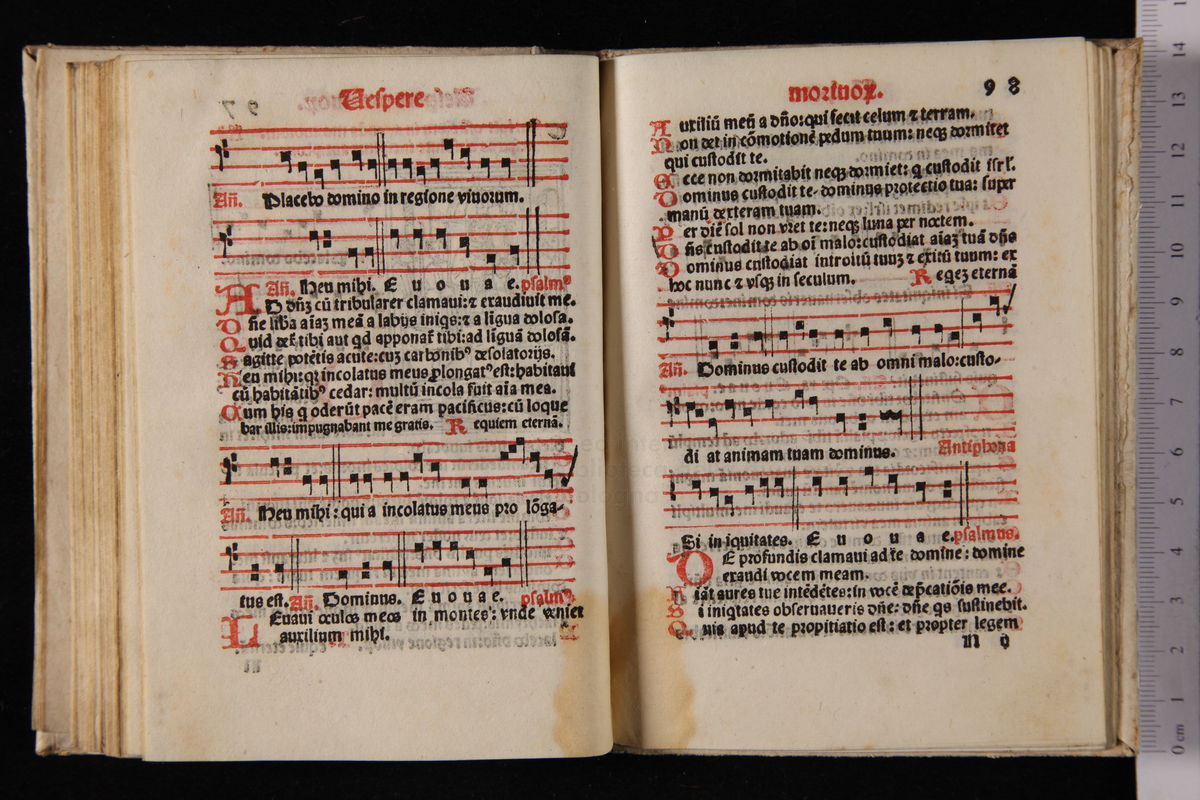 Uespere
Añ. Placebo domino in regione viuorum.
Añ. Heu mihi. E u o u a e. psalmꝰ
AD dñʒ cũ tribularer clamaui: ⁊ exaudiuit me.
Dñe liba aiaʒ meã a labijs iniqs: ⁊ a ligua dolosa.
Quid det tibi aut qd apponat tibi: ad liguã dolosã.
Sagitte potẽtis acute: cuʒ carbonibꝰ desolatorijs.
Heu mihi: qꝛ incolatus meus ꝓlongatꝰ est: habitaui
cũ habitãtibꝰ cedar: multũ incola fuit aĩa mea.
Cum his q̃ oderũt pacẽ eram pacificus: cũ loque
bar illis: impugnabant me gratis. R equiem eternã.
Añ. Heu mihi: qui a incolatus meus pro lõga-
tus est. Añ. Dominus. E u o u a e. psalmꝰ
LEuaui oculos meos in montes: vnde veniet
auxilium mihi.
mortuoꝝ. 98
Auxiliũ meũ a dño: qui fecit celum ⁊ terram.
Non det in cõmotionẽ pedum tuum: neqʒ dormitet
qui custodit te.
Ecce non dormitabit neqʒ dormiet: q̃ custodit isrl̃.
Dominus custodit te. dominus protectio tua: super
manũ dexteram tuam.
Per diẽ sol non vret te: neqʒ luna per noctem.
Dñs custodit te ab oĩ malo: custodiat aiaʒ tuã dñs
Dominus custodiat introitũ tuuʒ ⁊ exitũ tuum: ex
hoc nunc ⁊ vsqʒ in seculum. R eqeʒ eternã
Añ. Dominus custodit te ab omni malo: custo-
di at animam tuam dominus. Antiphona
Si in iquitates. E u o u a e. psalmus.
DE profundis clamaui ad te domine: domine
exaudi vocem meam.
Fiãt aures tue intẽdẽtes: in vocẽ dep̃catiõis mee.
Si iniqtates obseruaueris dñe: dñe qs sustinebit.
Quia apud te propitiatio est: et propter legem
N 9